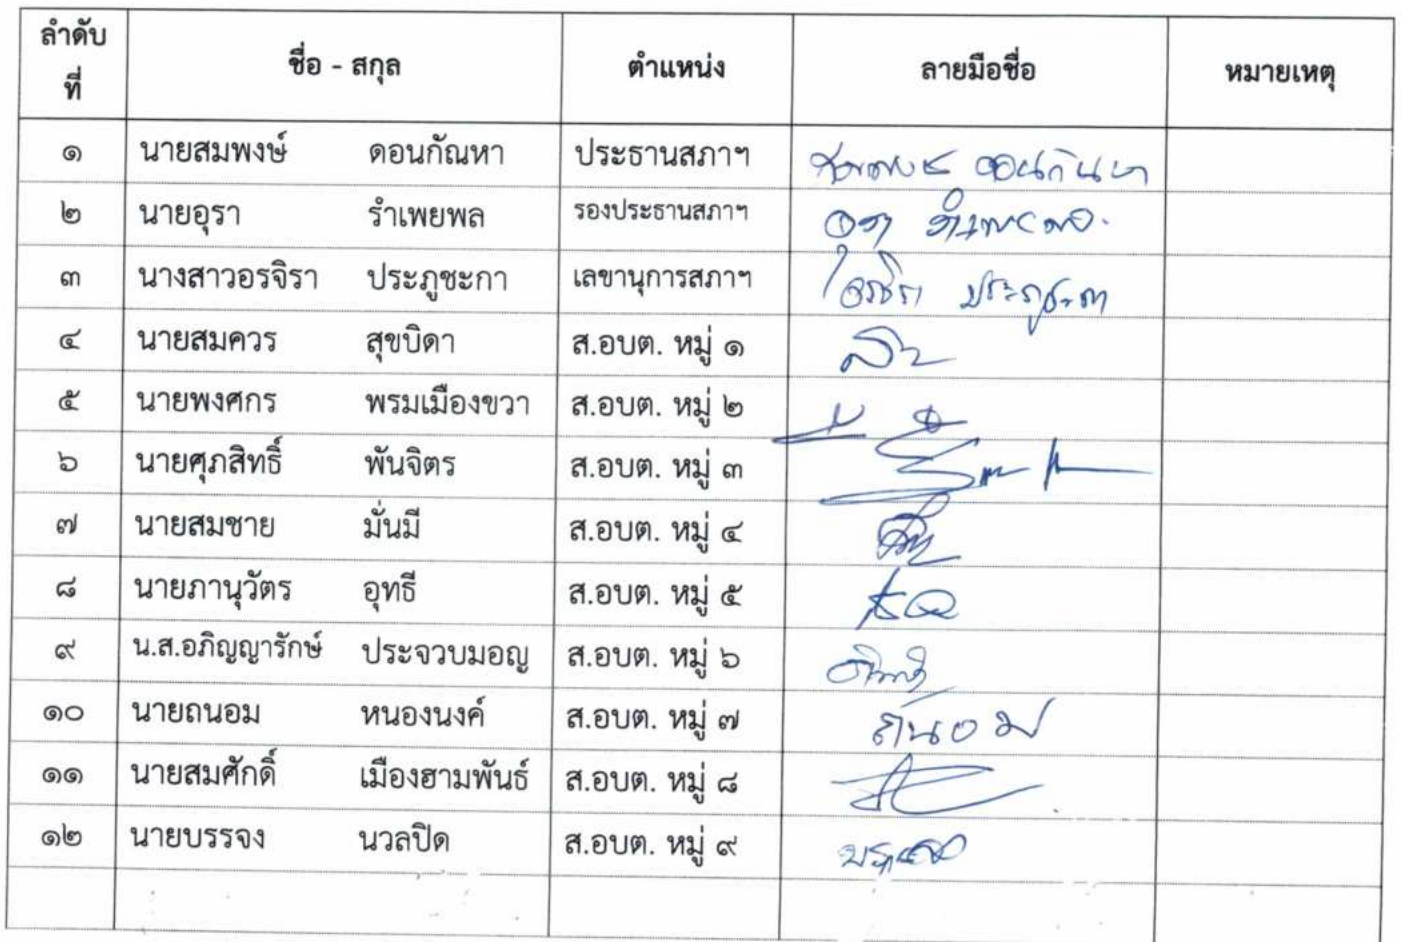 ลำดับที่ ชื่อ - สกุล ตำแหน่ง ลายมือชื่อ หมายเหตุ
๑ นายสมพงษ์ ดอนกัณหา ประธานสภาฯ สมพงษ์ ดอนกัณหา
๒ นายอุรา รำเพยพล รองประธานสภาฯ อุรา รำเพยพล
๓ นางสาวอรจิรา ประภูชะกา เลขานุการสภาฯ อรจิรา ประภูชะกา
๔ นายสมควร สุขบิดา ส.อบต. หมู่ ๑
๕ นายพงศกร พรมเมืองขวา ส.อบต. หมู่ ๒
๖ นายศุภสิทธิ์ พันจิตร ส.อบต. หมู่ ๓
๗ นายสมชาย มั่นมี ส.อบต. หมู่ ๔
๘ นายภานุวัตร อุทธี ส.อบต. หมู่ ๕
๙ น.ส.อภิญญารักษ์ ประจวบมอญ ส.อบต. หมู่ ๖
๑๐ นายถนอม หนองนงค์ ส.อบต. หมู่ ๗ ถนอม
๑๑ นายสมศักดิ์ เมืองฮามพันธ์ ส.อบต. หมู่ ๘
๑๒ นายบรรจง นวลปิด ส.อบต. หมู่ ๙ บรรจง